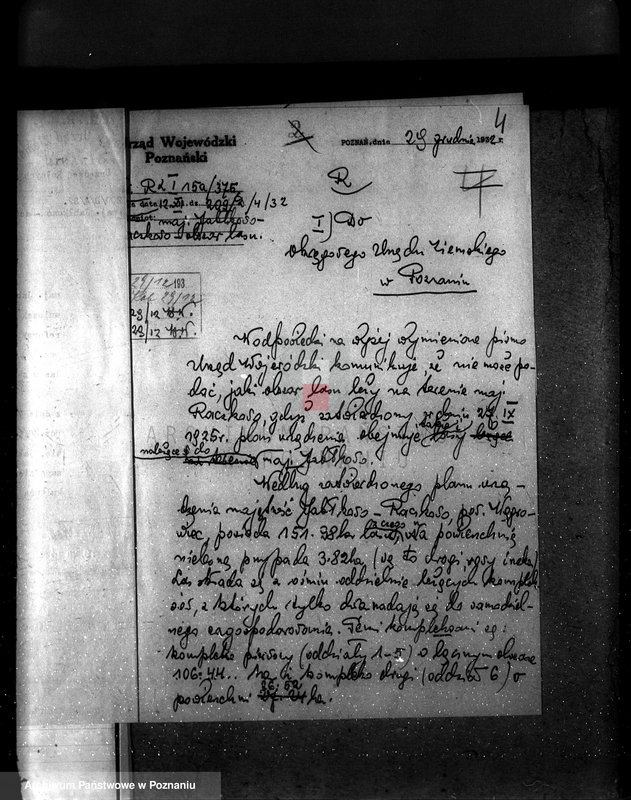 4
rząd Wojewódzki
Poznański
POZNAŃ, dnia 29 grudnia 1932 r.
R I 15a/375
R
na data 12.XI. ds. 299/2/4/32
maj. Jabłkowo-
Raczkowo obszar lasu.
I) Do
Okręgowego Urzędu Ziemskiego
w Poznaniu
29/12 193
29/12
23/12
29/12
W odpowiedzi na wyżej wymienione pismo
Urząd Wojewódzki komunikuje, że nie może po-
dać, jaki obszar lasu leży na terenie maj.
Raczkowo, gdyż zatwierdzony w dniu 29 IX
1925 r. plan urządzenia obejmuje lasy
należące do
maj. Jabłkowo.
Według zatwierdzonego planu urzą-
dzenia majętność Jabłkowo - Raczkowo pow. Wągro-
wiec, posiada 151.38 ha lasu, z czego na powierzchnię
nieleśną przypada 3.82 ha, (są to drogi rowy i rzeka)
Las składa się z ośmiu oddzielnie leżących komplek-
sów, z których tylko dwa nadają się do samodziel-
nego zagospodarowania. Temi kompleksami są:
kompleks pierwszy (oddziały 1-5) o łącznym obszarze
106.44 ha i kompleks drugi (oddział 6) o
powierzchni 36.52 ha.
Archiwum Państwowe w Poznaniu